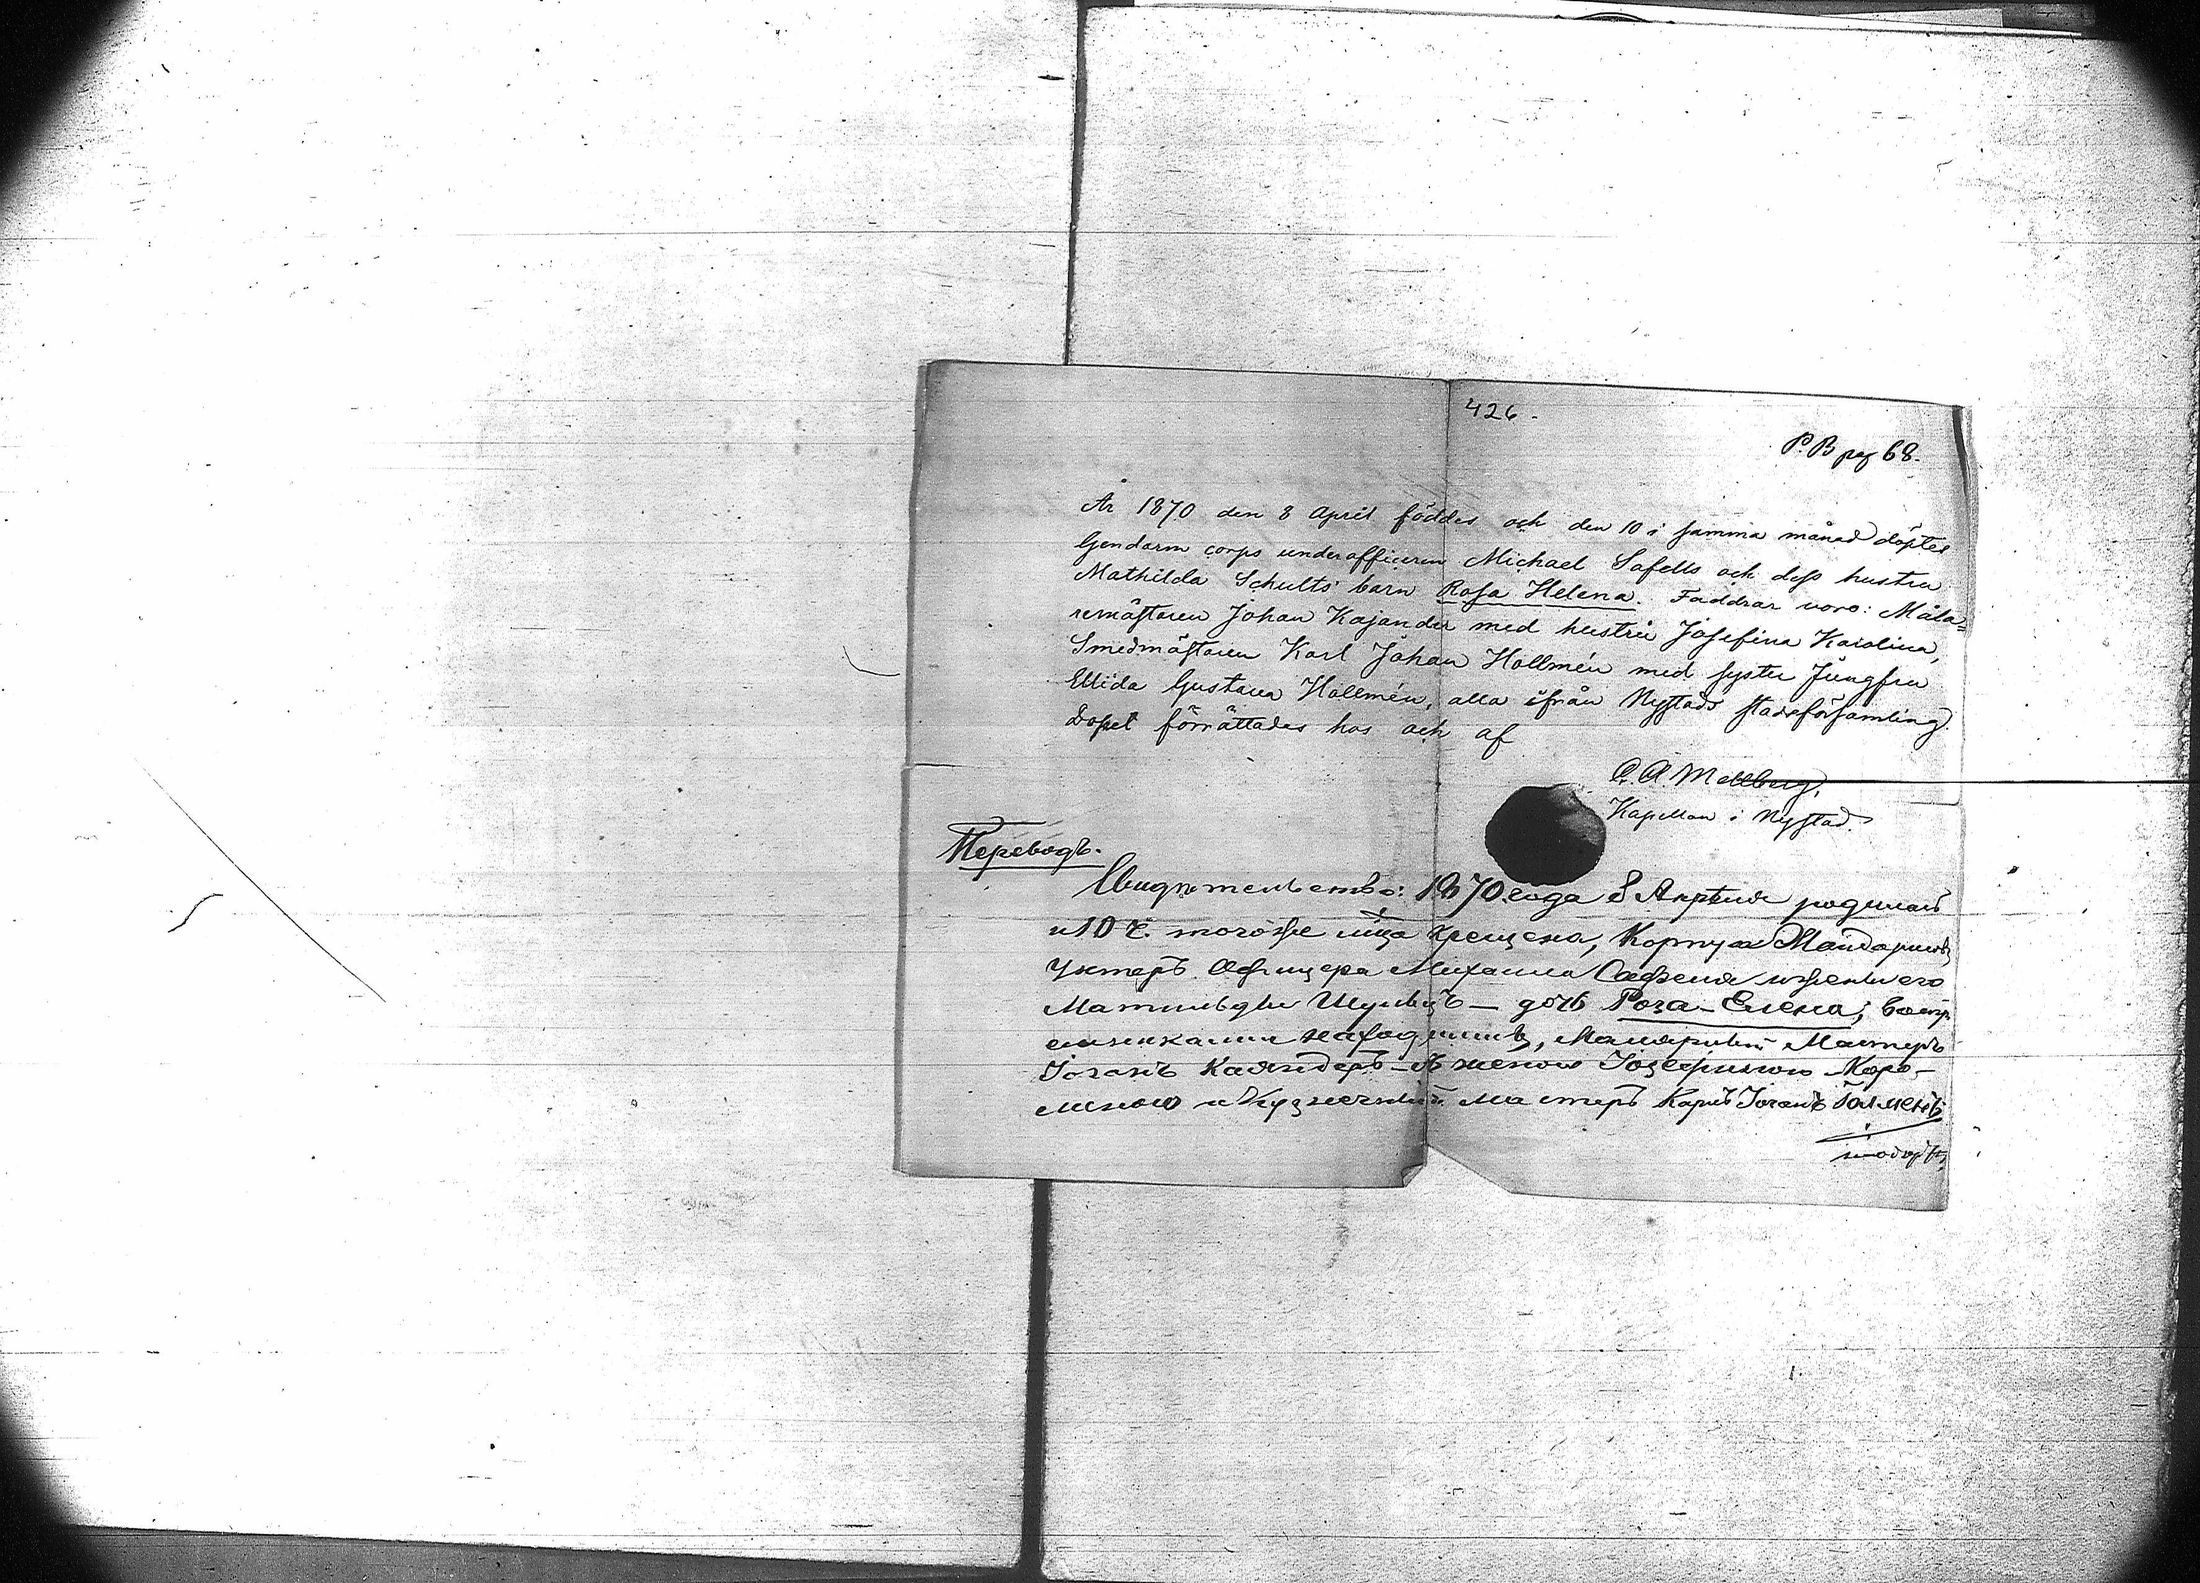 426.
P. B pag 68.
År 1870 den 8 April föddes och den 10 i samma månad döptes
Gendarm corps underofficeren Michael Safells och dess hustru
Mathilda Schults barn Rosa Helena. Faddrar voro: Måla=
remästaren Johan Kajander med hustru Josefina Karolina,
Smedmästaren Karl Johan Hollmén med syster Jungfru
Ellida Gustava Hollmén, alla ifrån Nystads stadsförsamling.
Dopet förrättades hos och af
C. A. Mellberg,
Kapellan i Nystad.
Переводъ.
Свидѣтельство: 1870 года 8 Апрѣля родилась
и 10 ч. того же м-ца крещена, Корпуса Жандармовъ
Унтеръ Офицера Михаила Сафеля и жены его
Матильды Шульцъ — дочь Роза-Елена; Воспр
емниками находились, Малярный Мастеръ
Іоганъ Каяндеръ съ женою Іозефиною Каро-
линою и Кузнечный мастеръ Карлъ Іоганъ Голменъ